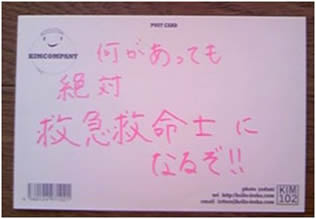 POST CARD
KIMCOMPANY
何があっても
絶対
救急救命士に
なるぞ!!
KIM
102